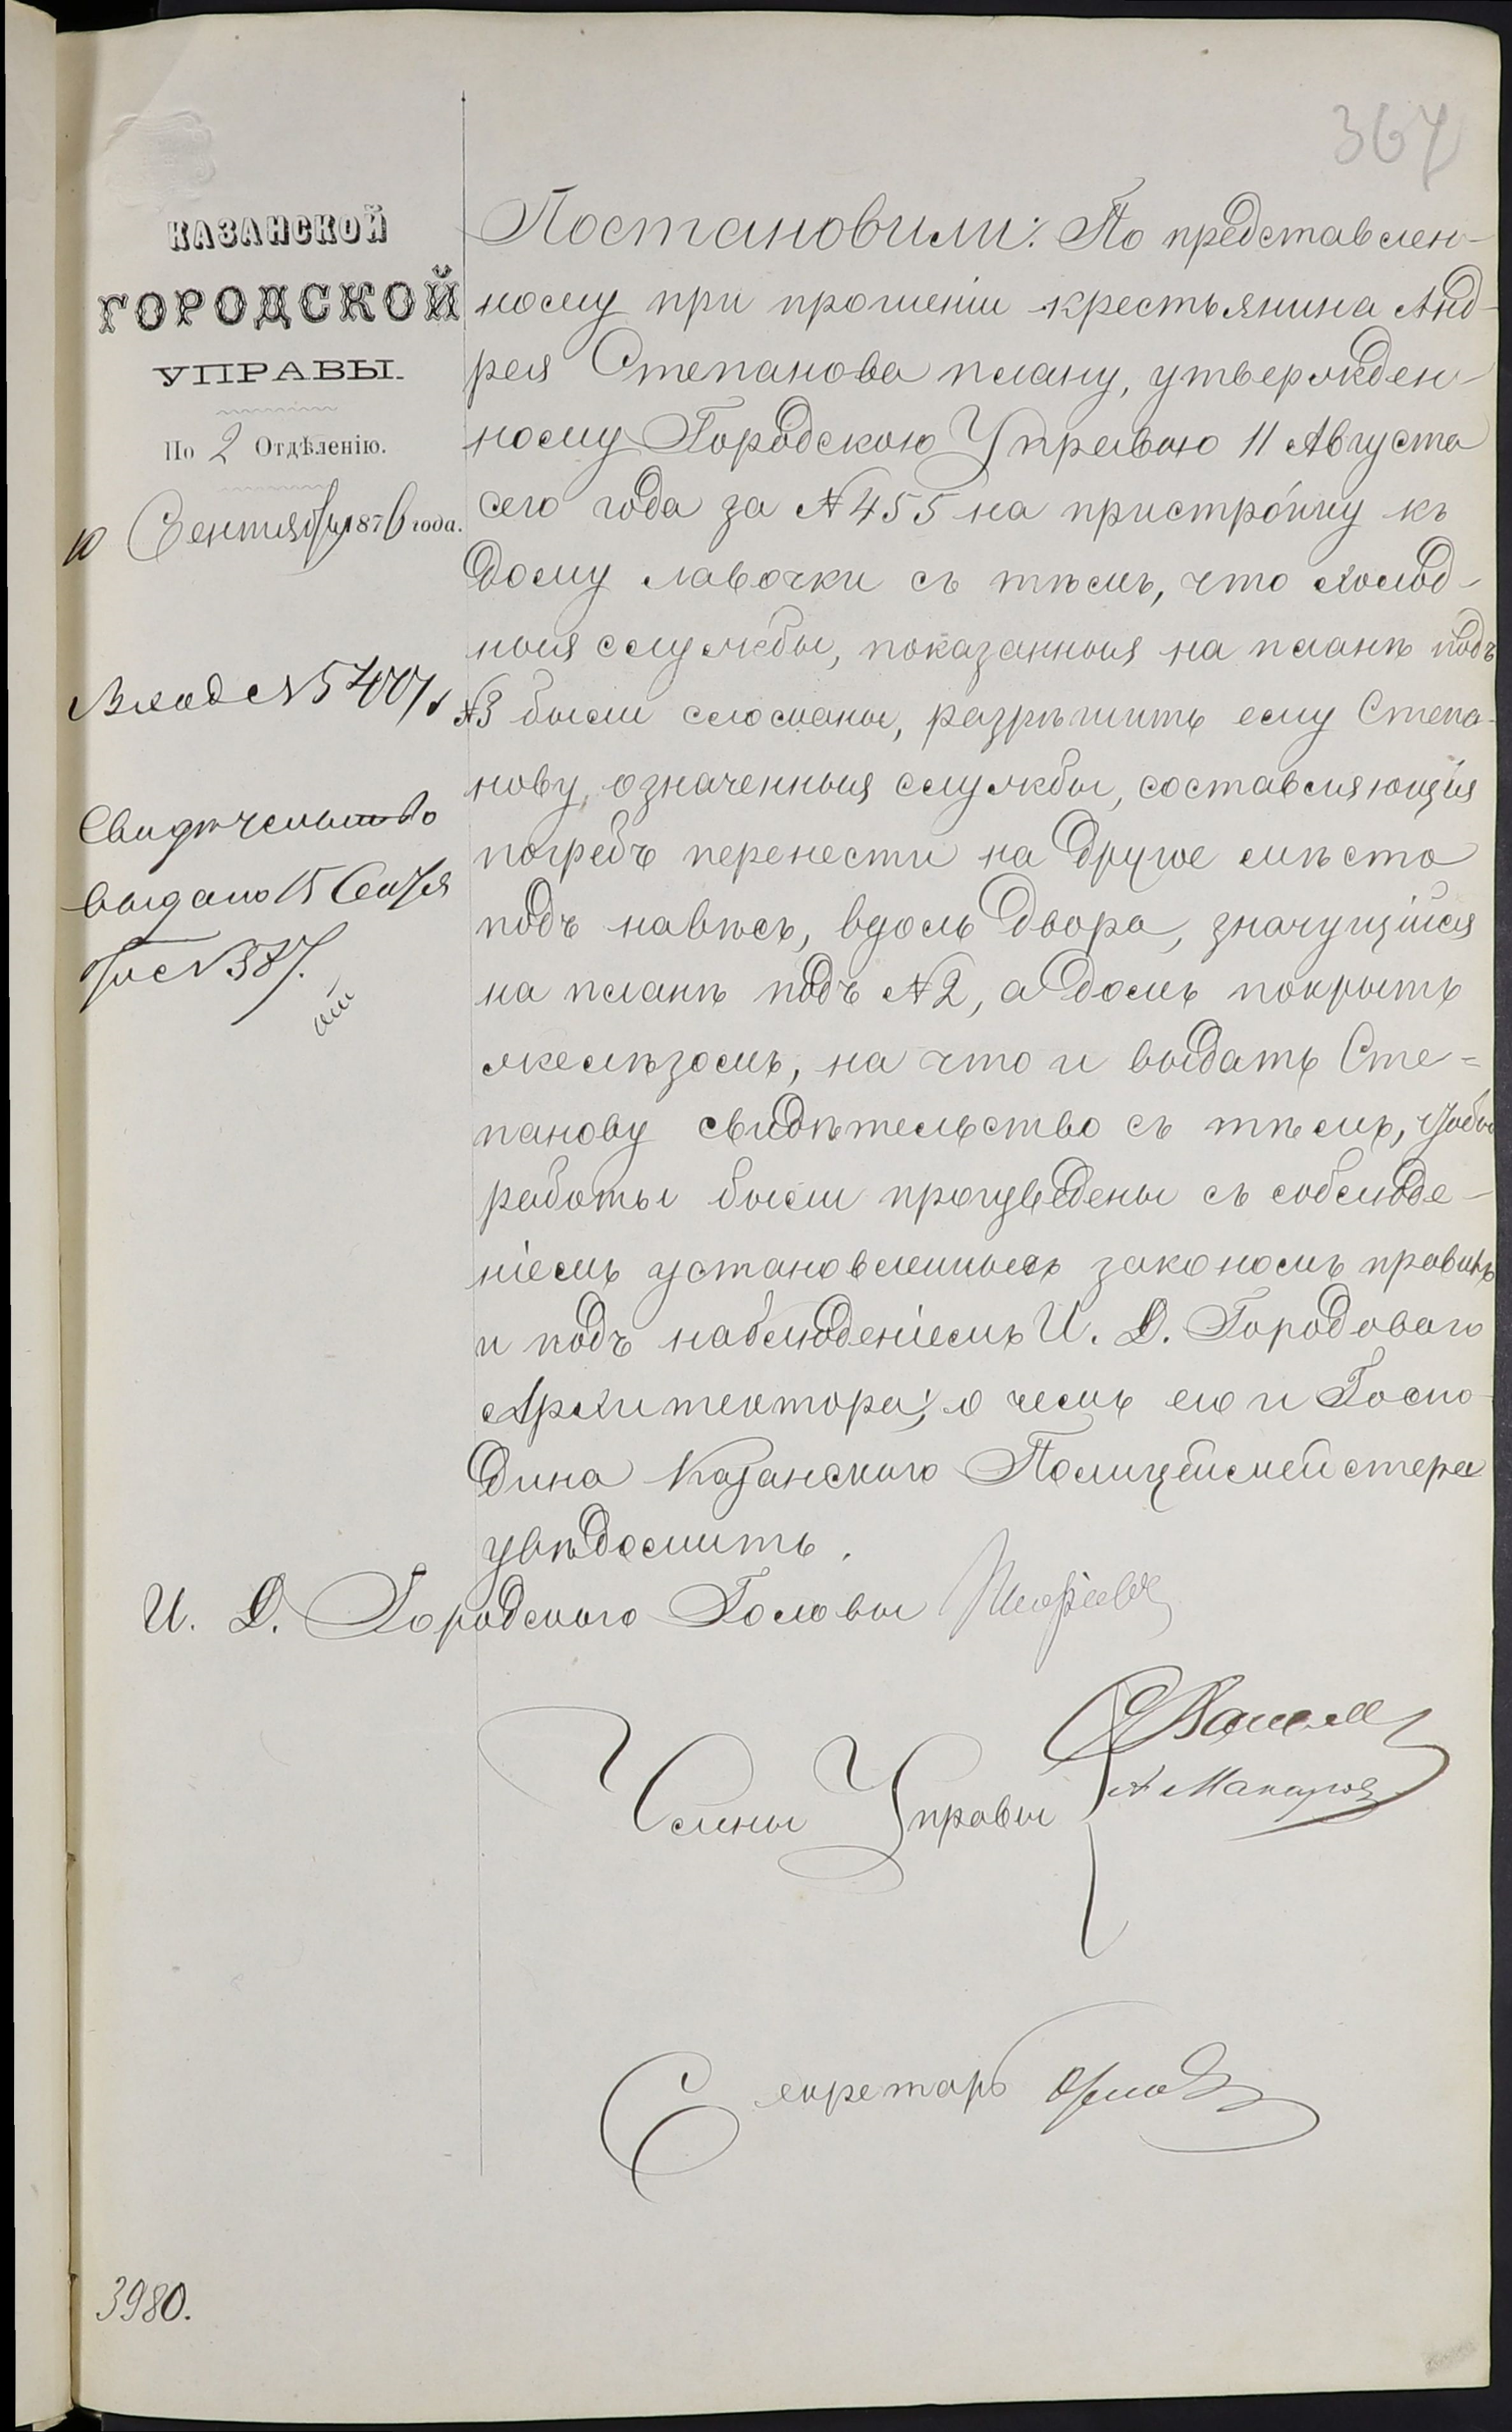 367
КАЗАНСКОЙ
ГОРОДСКОЙ
УПРАВЫ.
По 2 Отдѣленію.
10 Сентября 1876 года.
Вход № 5400/1
Свидѣтельство
выдано 15 Сентя
за № 387.
Постановили: По представлен-
ному при прошеніи крестьянина Анд-
рея Степанова плану, утвержден-
ному Городскою Управою 11 Августа
сего года за № 455 на пристройку къ
дому лавочки съ тѣмъ, что холод-
ныя службы, показанныя на планѣ подъ
№3 были сломаны, разрѣшить ему Степа-
нову, означенныя службы, составляющія
погребъ перенести на другое мѣсто
подъ навѣсъ, вдоль двора, значущійся
на планѣ подъ №2, а домъ покрыть
желѣзомъ, на что и выдать Сте=
панову свидѣтельство съ тѣмъ, чтобы
работы были произведены съ соблюде-
ніемъ установленныхъ закономъ правилъ
и подъ наблюденіемъ И. Д. Городоваго
Архитектора; о чемъ его и Госпо-
дина Казанского Полицеймейстера
увѣдомить.
И. Д. Городскаго Головы
Члены Управы
А Макаровъ
Секретарь Орловъ
3980.